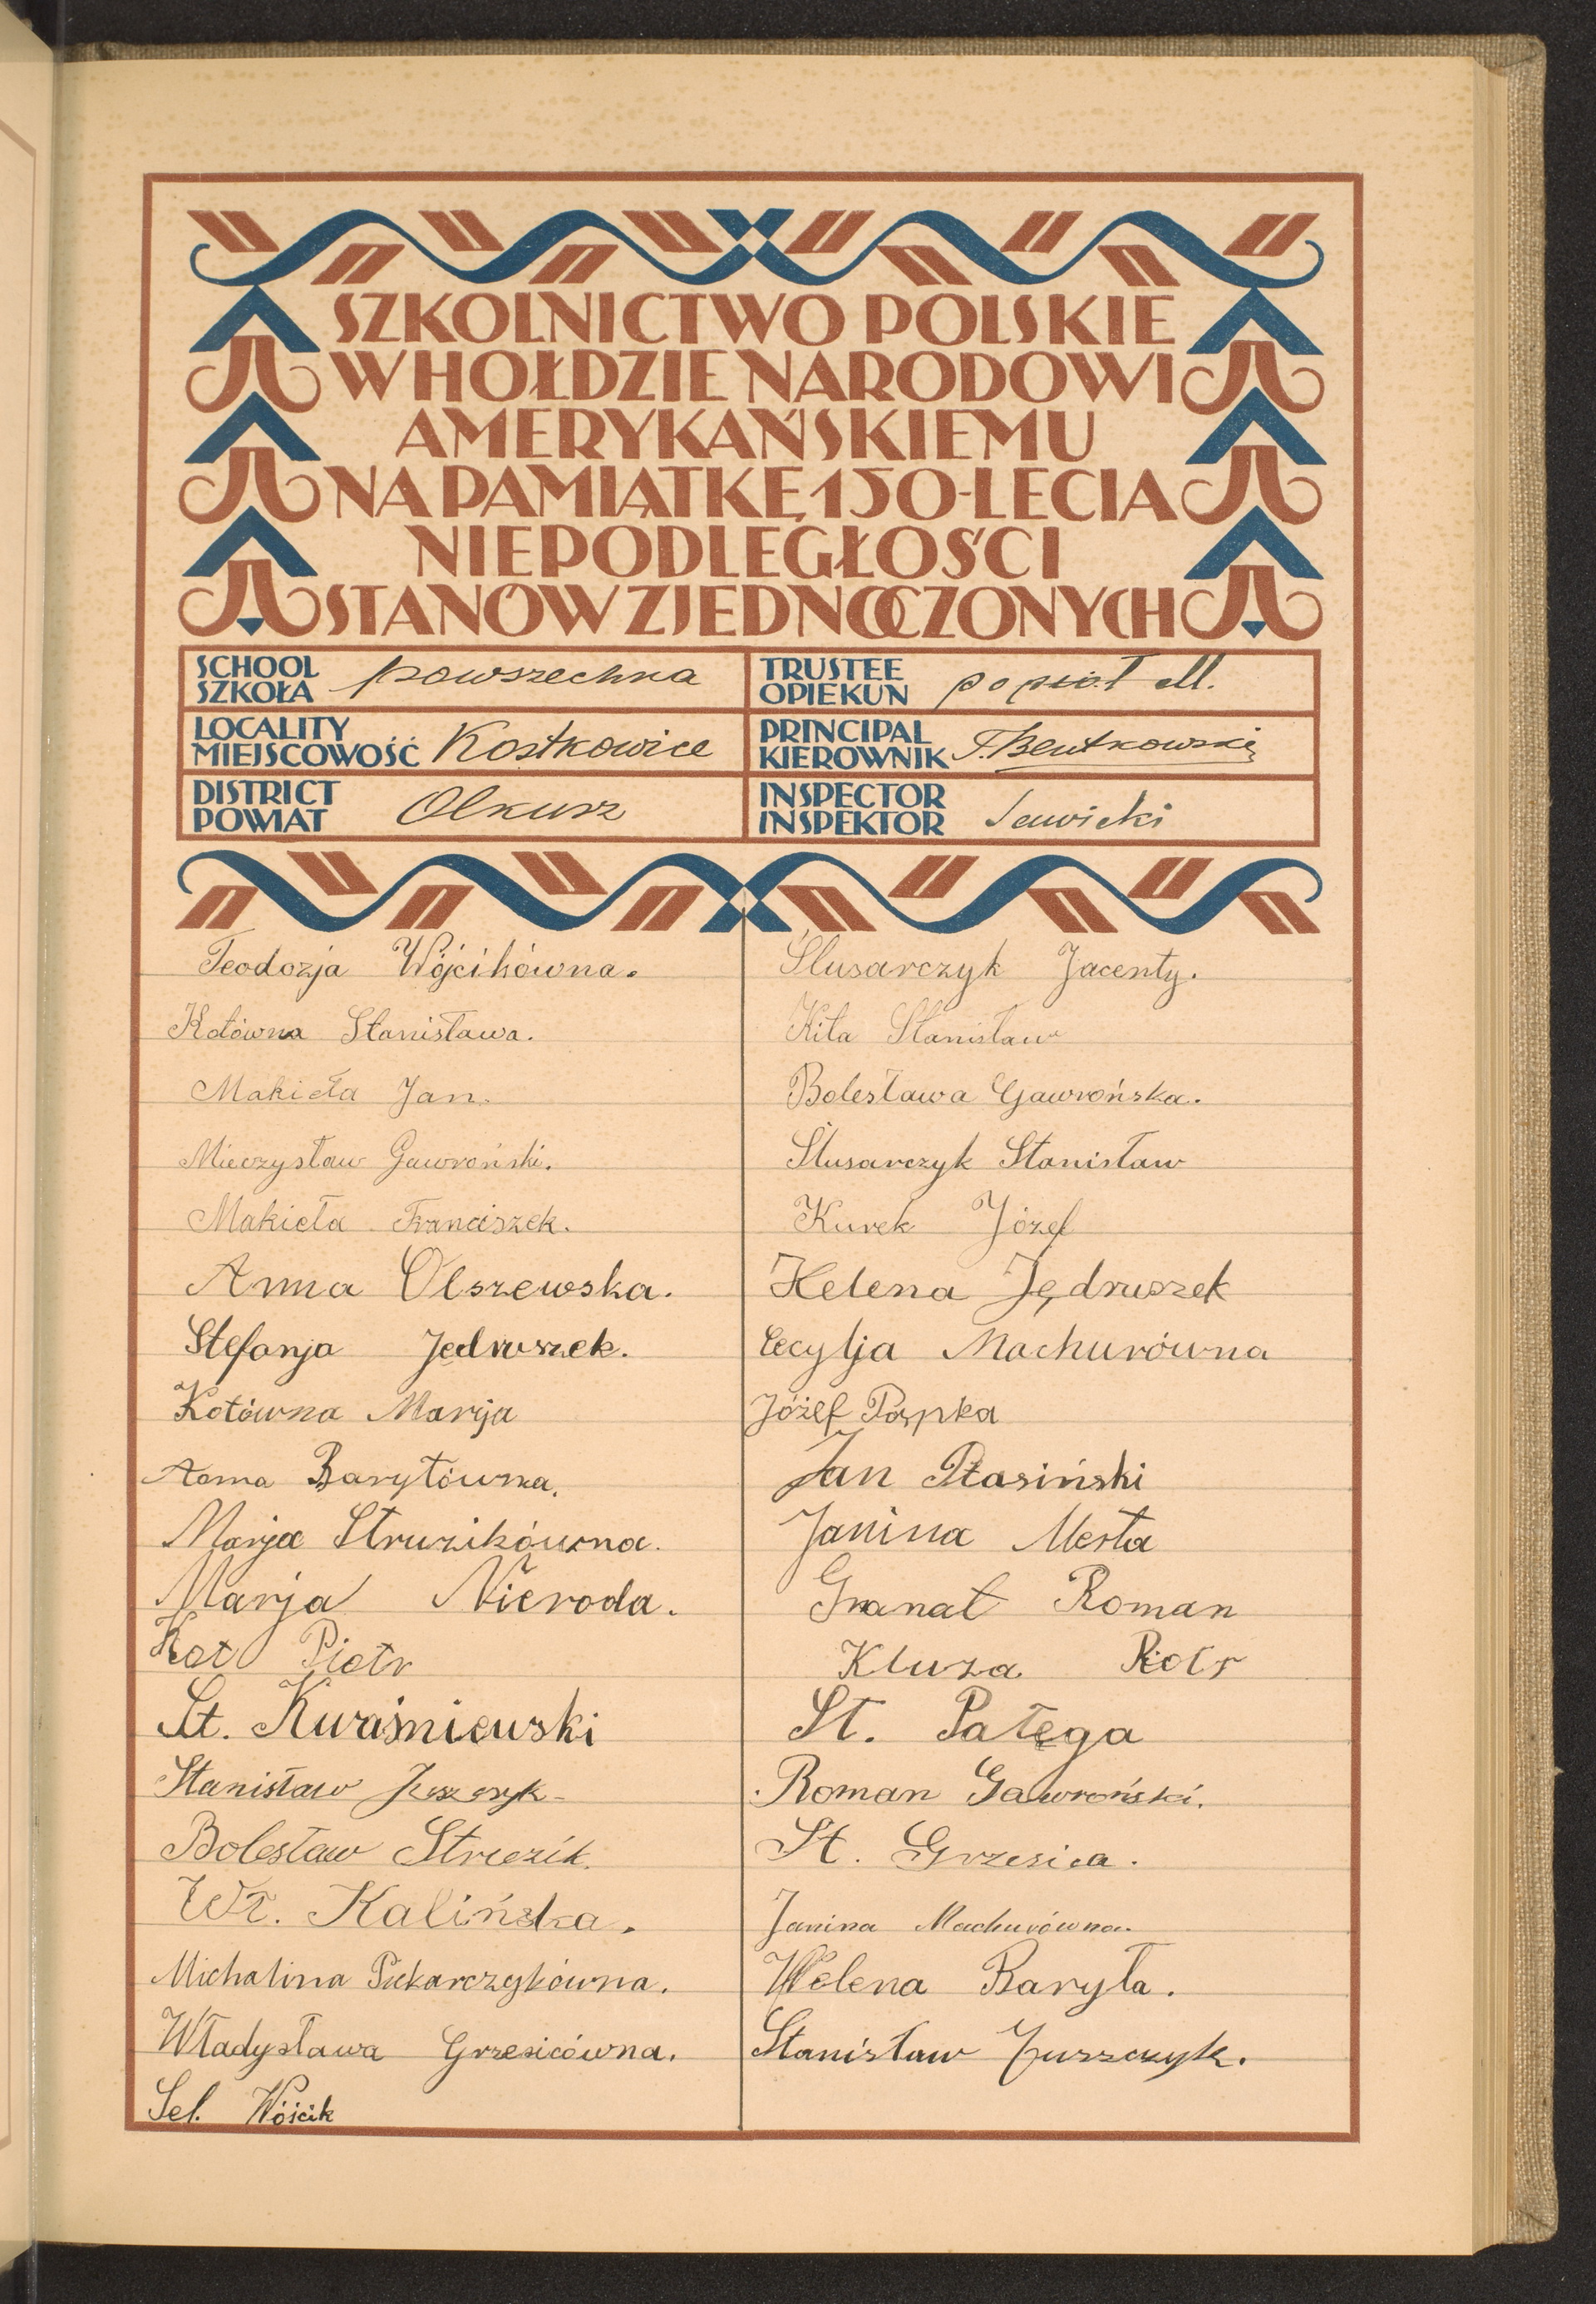 SZKOLNICTWO POLSKIE
W HOŁDZIE NARODOWI
AMERYKAŃSKIEMU
NA PAMIĄTKĘ 150-LECIA
NIEPODLEGŁOŚCI
STANÓW ZJEDNOCZONYCH
SCHOOL
SZKOŁA powszechna
TRUSTEE
OPIEKUN popiół M.
LOCALITY
MIEJSCOWOŚĆ Kostkowice
PRINCIPAL
KIEROWNIK T. Bentkowski
DISTRICT
POWIAT Olkusz
INSPECTOR
INSPEKTOR Sawicki
Teodozja Wójcikówna.
Kotówna Stanisława.
Makieła Jan.
Mieczysław Gawroński.
Makieła Franciszek.
Anna Olszewska.
Stefanja Jedruszek.
Kotówna Marija
Anna Baryłówna.
Marja Struzikówna.
Marja Nieroda.
Kot Piotr
St. Kwaśniewski
Stanisław
Bolesław Struzik.
Wł. Kalińska.
Michalina Piekarczykówna.
Władysława Grzesicówna.
Sel. Wójcik
Ślusarczyk Jacenty.
Kita Stanisław
Bolesława Gawrońska.
Ślusarczyk Stanisław
Kurek Józef
Helena Jędruszek
Cecylja Machurówna
Józef Papka
Jan Ptasiński
Janina Mesta
Granat Roman
Kluza Piotr
St. Pałęga
Roman Gawroński.
St. Grzesica.
Janina Machurówna.
Helena Baryła.
Stanisław Juszczyk.